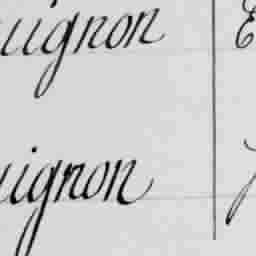 uignon E
uignon